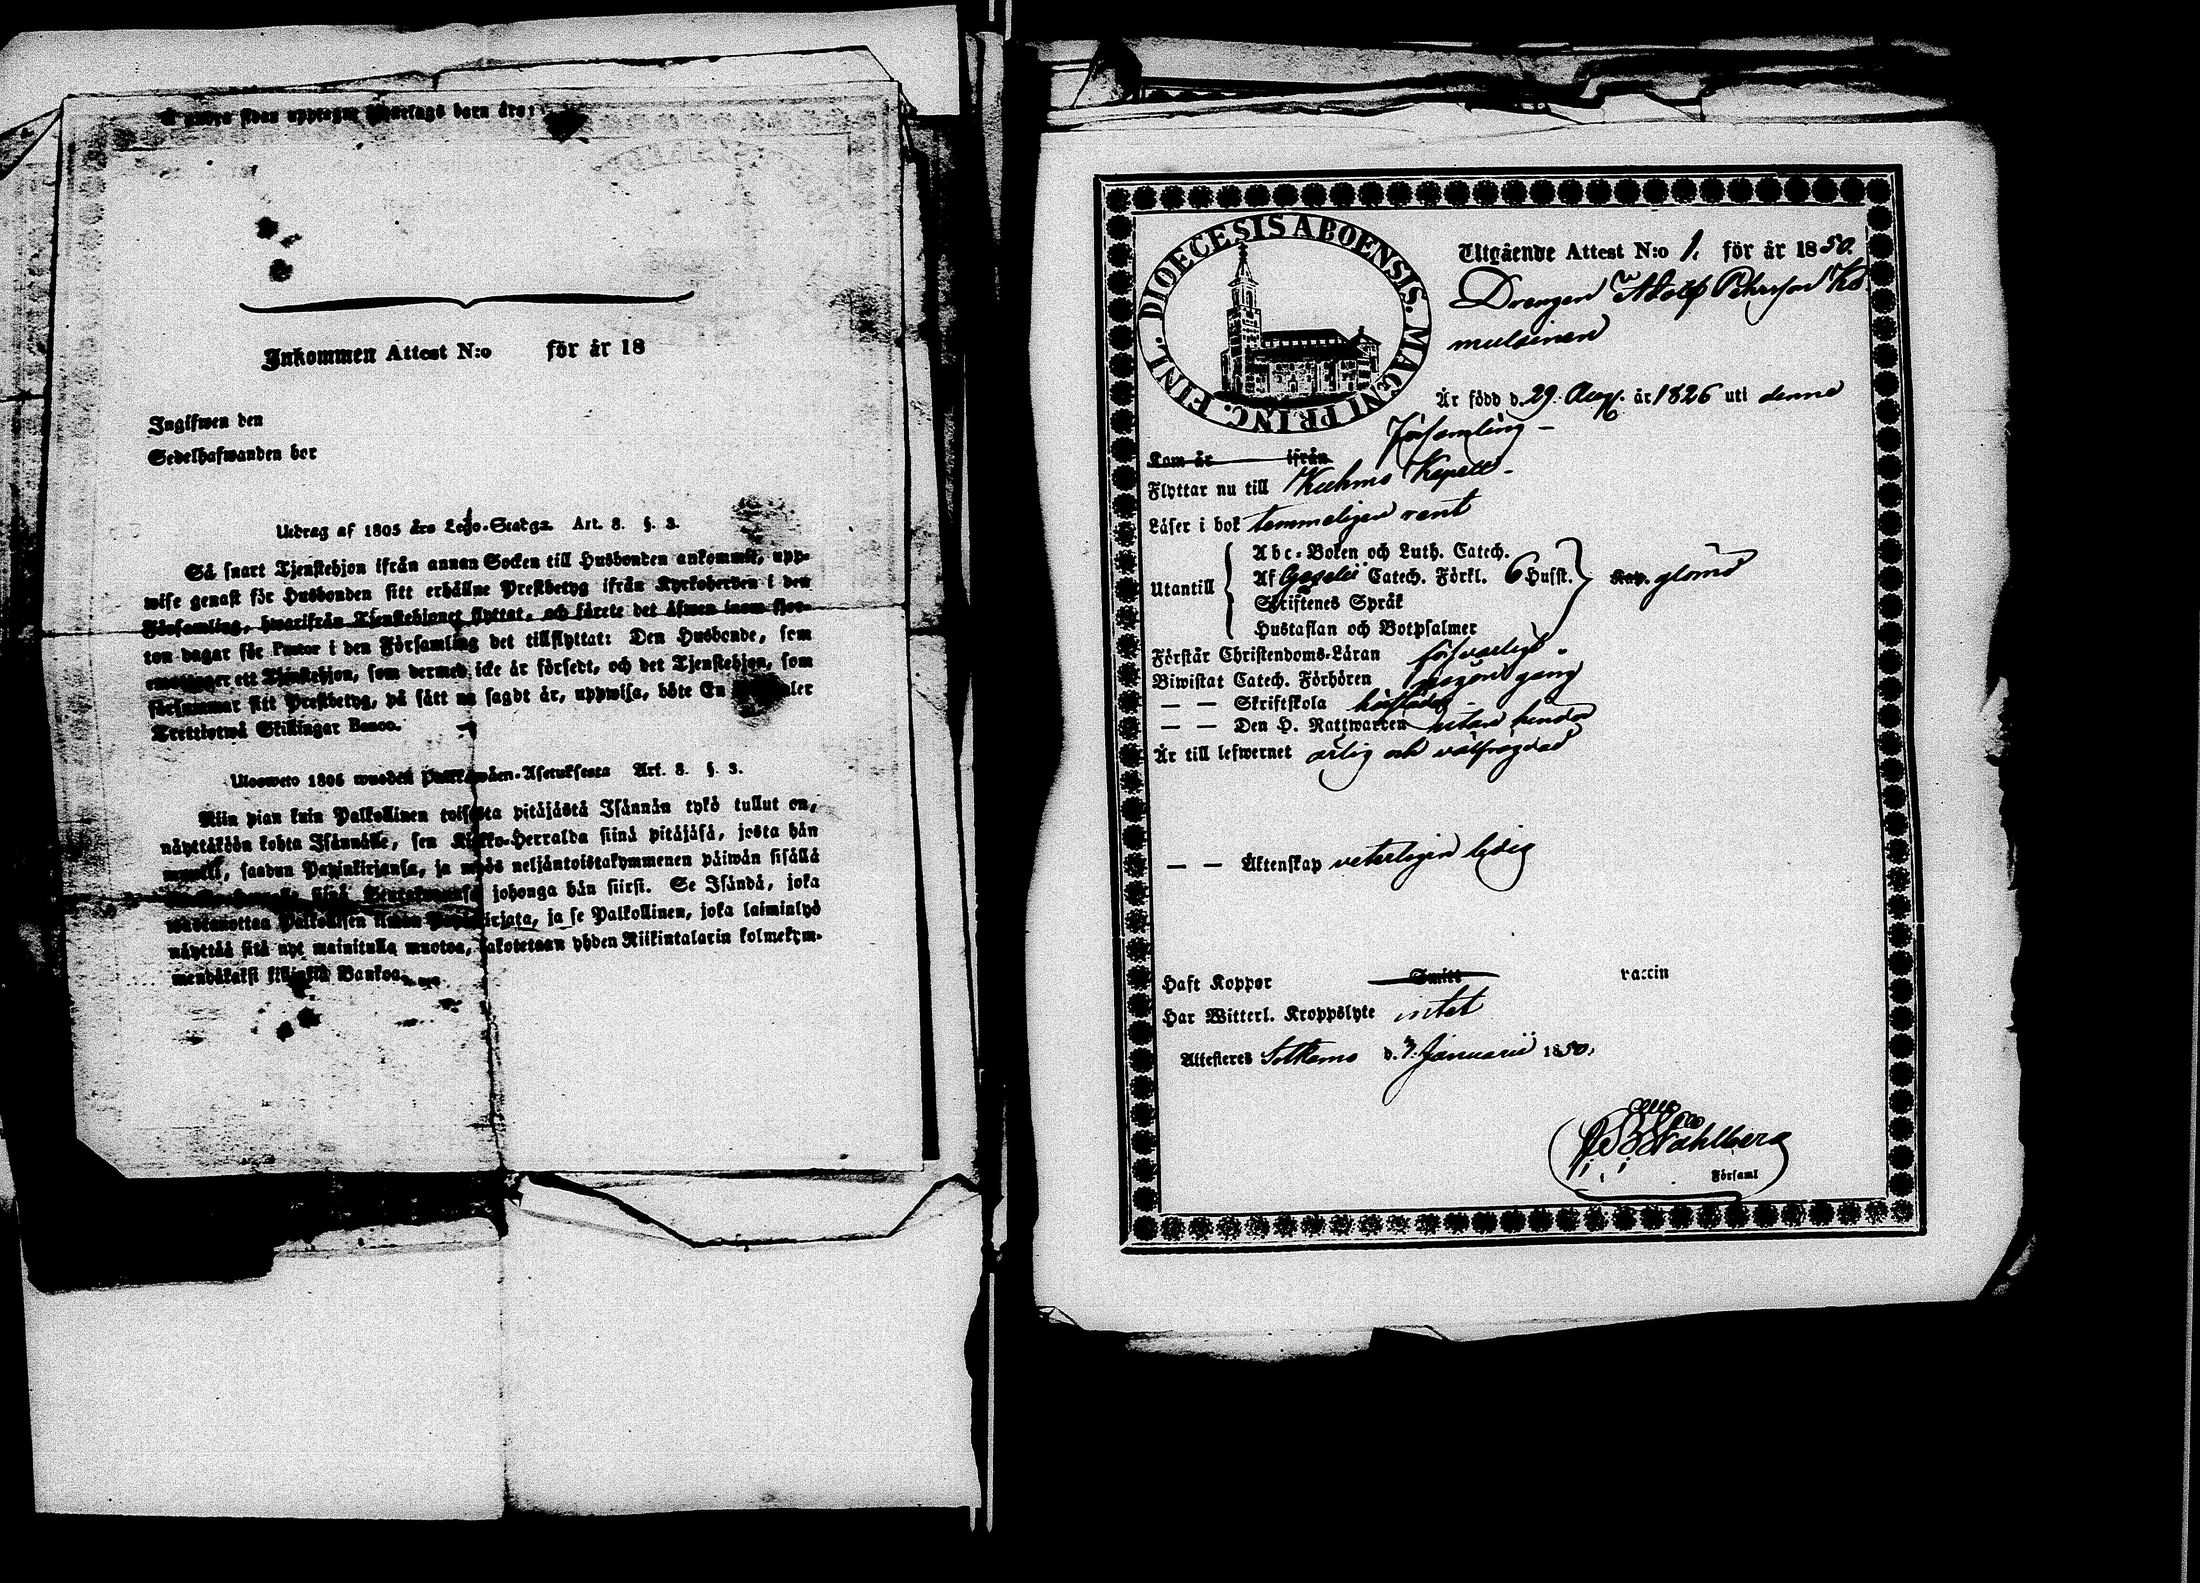 födan upptagne barn äro:
Inkommen Attest N:o för år 18
Ingifwen den
Sedelhafwanden bor
Utdrag af 1805 års Lego-Stadga. Art. 8. §. 3.
Så snart Tjenstehjon ifrån annan Socken till Husbonden ankommit, upp-
wise genast för Husbonden sitt erhållne Prestbetyg ifrån Kyrkoherden i den
Församling, hwarifrån Tjenstehjonet flyttat, och förete det äfwen inom fjor-
ton dagar för Pastor i den Församling det tillflyttat: Den Husbonde, som
emottager ett Tjenstehjon, som dermed icke är försedt, och det Tjenstehjon, som
försummar sitt Prestbetyg, på sätt nu sagdt är, uppwisa, böte En
Trettiotwå Skillingar Banco.
Ulosweto 1805 wuoden Palkkawäen-Asetuksesta Art. 8. §. 3.
Niin pian kuin Palkollinen toisesta pitäjästä Isännän tykö tullut on,
näyttäköön kohta Isännälle, sen Kirkko-Herralda siinä pitäjäsä, josta hän
muutti, saadun Papinkirjansa, ja myös neljäntoistakymmenen päiwän sisällä
siinä Seurakunnasa johonga hän siirsi. Se Isändä, joka
wastaanottaa Palkollisen ilman Papinkirjata, ja se Palkollinen, joka laiminlyö
näyttää sitä nyt mainitulla muotoa, sakotetaan yhden Riikintalarin kolmekym-
mendäkaksi killingiä Bankoa.
DIOECESIS ABOENSIS. MAGNI PRINC. FINL.
Utgående Attest N:o 1. för år 1850.
Drengen Adolf Pehrsson Ko
mulainen
Är född d. 29. Aug. år 1826 uti denne
Församling –
Kom år ifrån
Flyttar nu till Kuhmo Kapell –
Läser i bok temmeligen rent
Utantill
Abc-Boken och Luth. Catech.
Af Gezelii Catech. Förkl. 6 Husst.
Skriftenes Språk
Hustaflan och Botpsalmer
Kap. glömd
Förstår Christendoms-Läran försvarligt
Biwistat Catech. Förhören någon gång
— — Skriftskola
— — Den H. Nattwarden utan hinder
Är till lefwernet ärlig och välfrägdad
— — Äktenskap veterligen ledig
Haft Koppor Smitt vaccin
Har Witterl. Kroppslyte intet
Attesteras Sotkamo d. 3. Januarii 1850.
Wahlberg
Församl